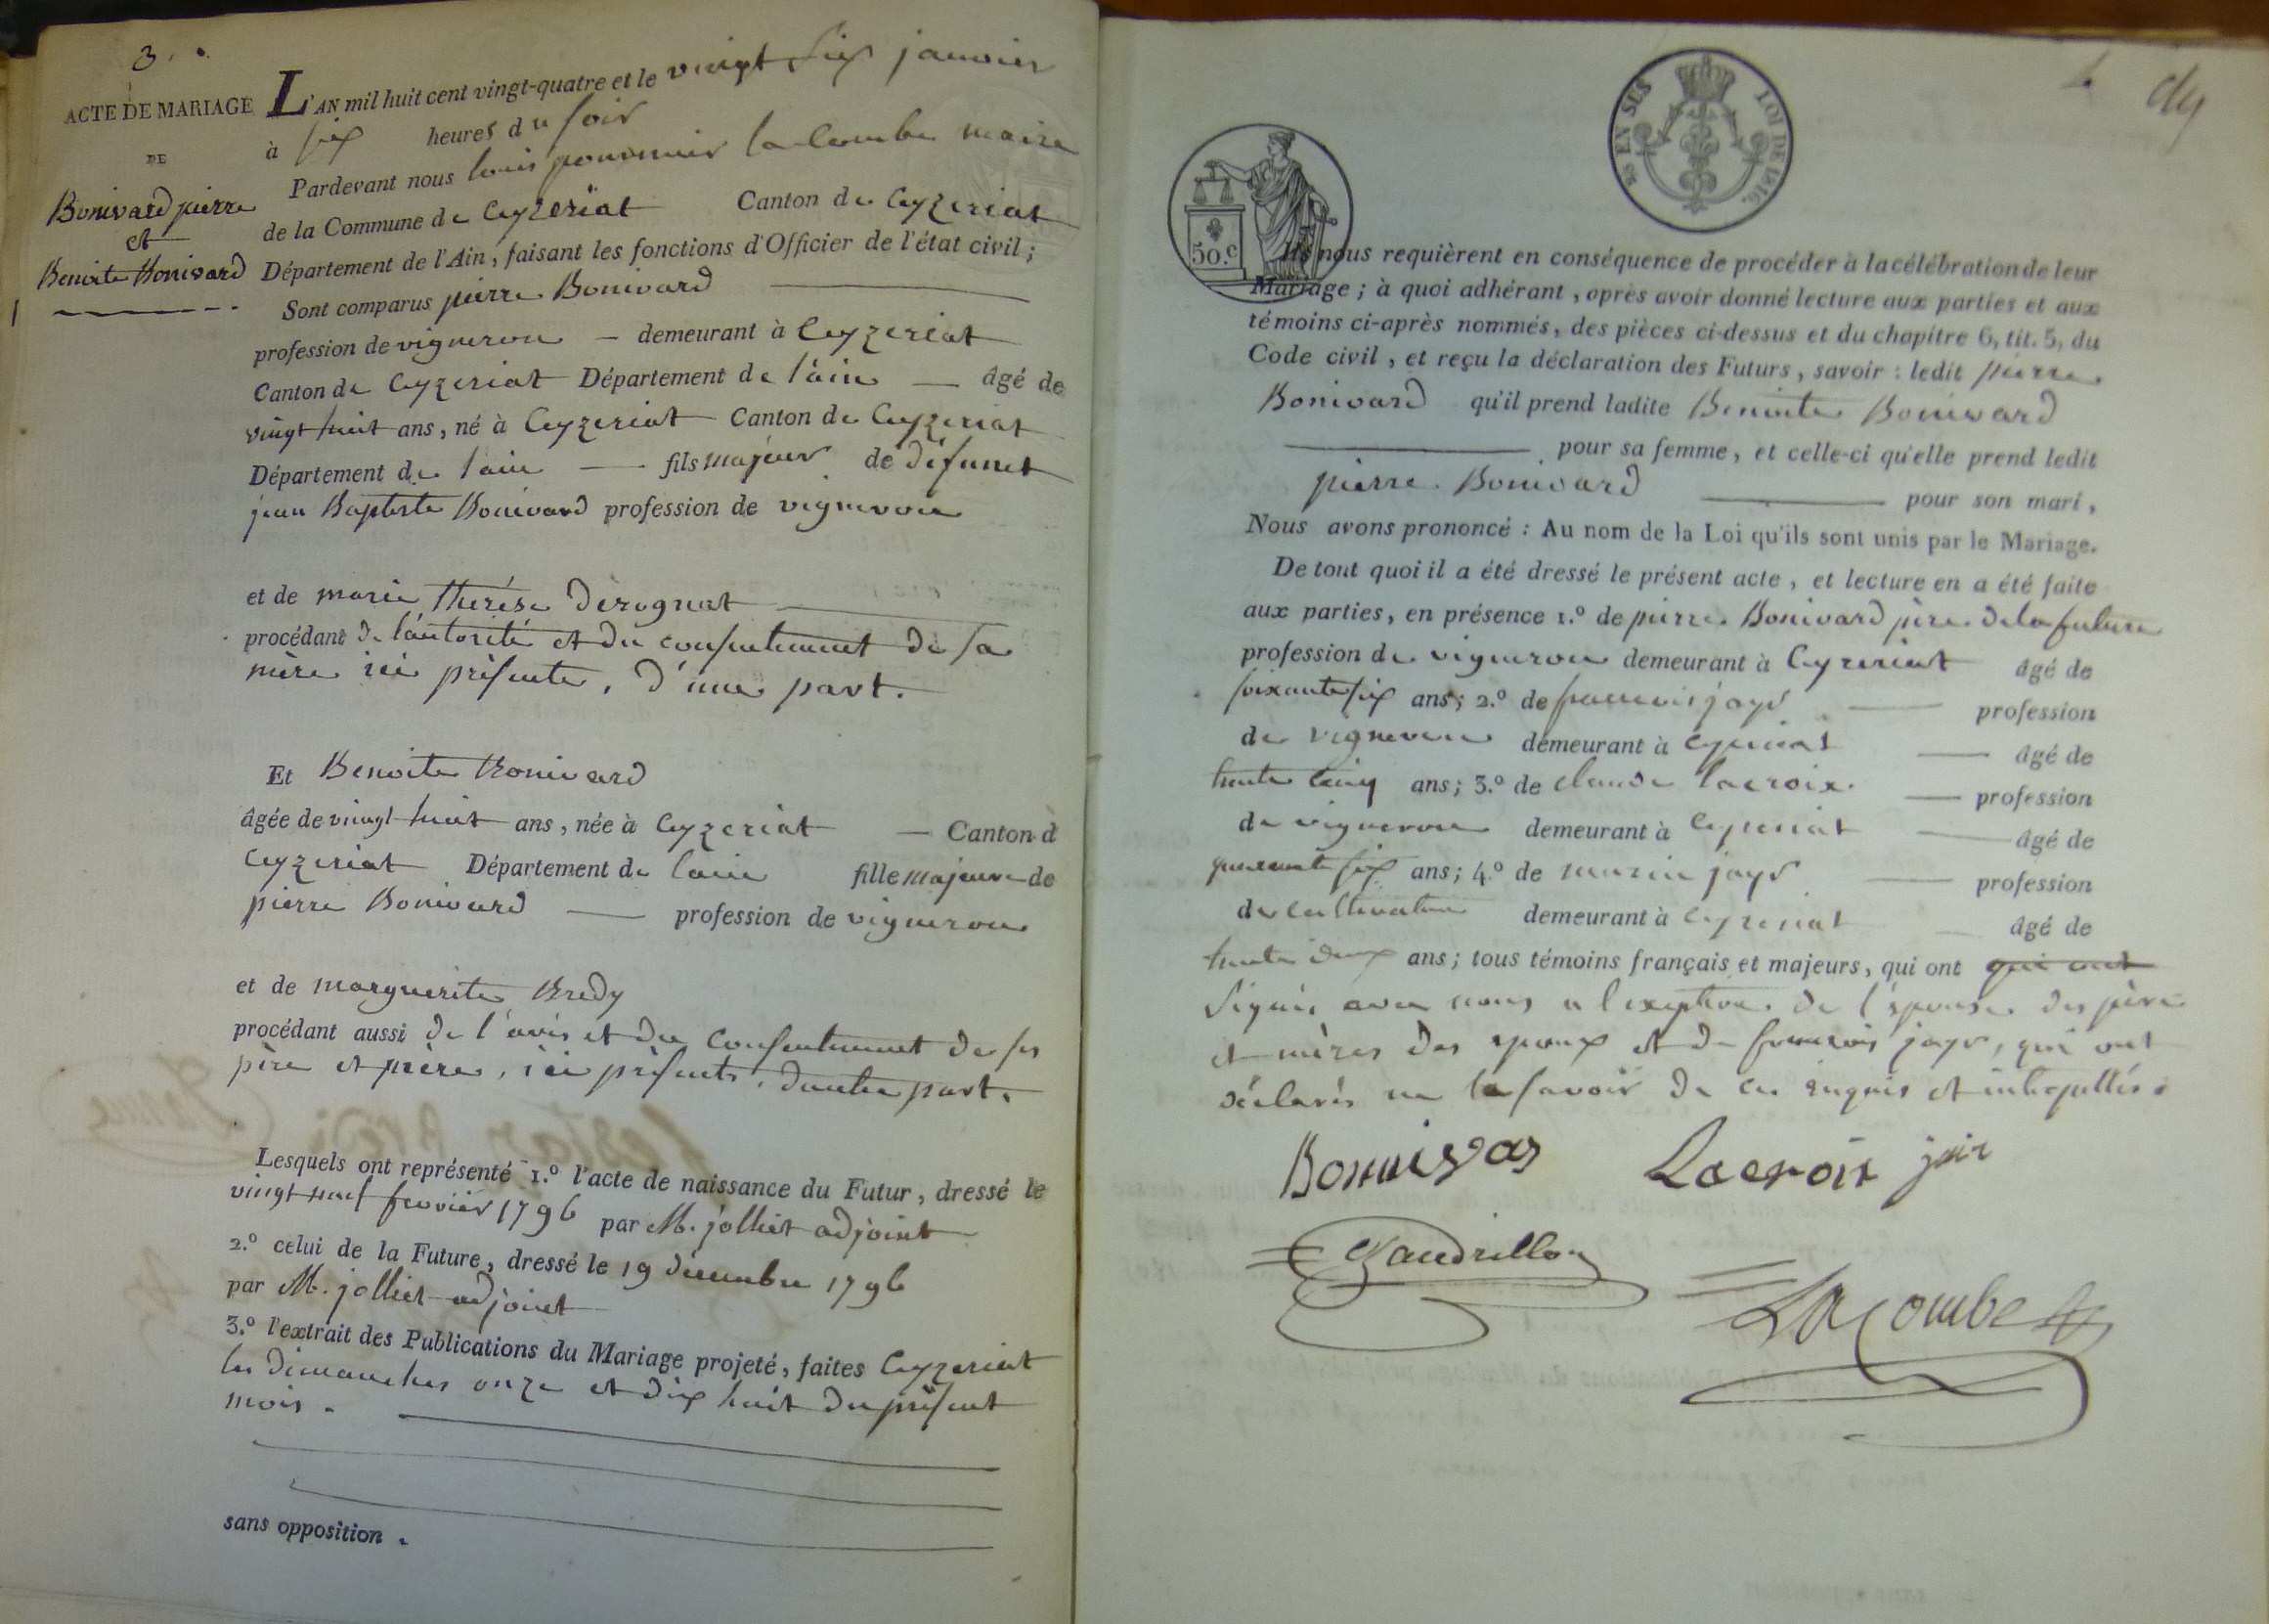 3.
ACTE DE MARIAGE
DE
Bonivard pierre
et
Benoite Bonivard
L'AN mil huit cent vingt-quatre et le vingt six janvier
à six heures du soir
Pardevant nous louis lacombe maire
de la Commune de Ceyzeriat Canton de Ceyzeriat
Département de l'Ain, faisant les fonctions d'Officier de l'état civil;
Sont comparus pierre Bonivard
profession de vigneron demeurant à Ceyzeriat
Canton de Ceyzeriat Département de l'ain âgé de
vingt huit ans, né à Ceyzeriat Canton de Ceyzeriat
Département de l'ain fils majeur de défunct
jean Baptiste Bonivard profession de vigneron
et de marie thérése derognat
procédant de l'autorité et du consentement de sa
mère ici présente, d'une part.
Et Benoite Bonivard
âgée de vingt huit ans, née à Ceyzeriat Canton d
Ceyzeriat Département de l'ain fille majeure de
pierre Bonivard profession de vigneron
et de marguerite Bredy
procédant aussi de l'avis et du consentement de ses
père et mère, ici présents, dautre part.
Lesquels ont représenté 1.º l'acte de naissance du Futur, dressé le
vingt neuf fevrier 1796 par M. jolliet adjoint
2.º celui de la Future, dressé le 19 decembre 1796
par M. jolliet adjoint
3.º l'extrait des Publications du Mariage projeté, faites Ceyzeriat
les dimanches onze et dix huit du présent
mois.
sans opposition.
50.c
LOI DE 1816.
Ils nous requièrent en conséquence de procéder à la célébration de leur
Mariage; à quoi adhérant, après avoir donné lecture aux parties et aux
témoins ci-après nommés, des pièces ci-dessus et du chapitre 6, tit. 5, du
Code civil, et reçu la déclaration des Futurs, savoir: ledit pierre
Bonivard qu'il prend ladite Benoite Bonivard
pour sa femme, et celle-ci qu'elle prend ledit
pierre Bonivard pour son mari,
Nous avons prononcé: Au nom de la Loi qu'ils sont unis par le Mariage.
De tout quoi il a été dressé le présent acte, et lecture en a été faite
aux parties, en présence 1.º de pierre Bonivard père de la future
profession de vigneron demeurant à Ceyzeriat âgé de
soixante six ans; 2.º de francois jayr profession
de vigneron demeurant à Ceyzeriat âgé de
trente cinq ans; 3.º de claude lacroix profession
de vigneron demeurant à Ceyzeriat âgé de
quarante six ans; 4.º de marin jayr profession
de cultivateur demeurant à Ceyzeriat âgé de
trente deux ans; tous témoins français et majeurs, qui ont qui ont
signés avec nous a l'exeption de l'épouse des père
et mères des epoux et de francois jayr, qui ont
déclarés ne le savoir de ce enquis et interpellés.
Bonnivar Lacroix jair
Lacombe